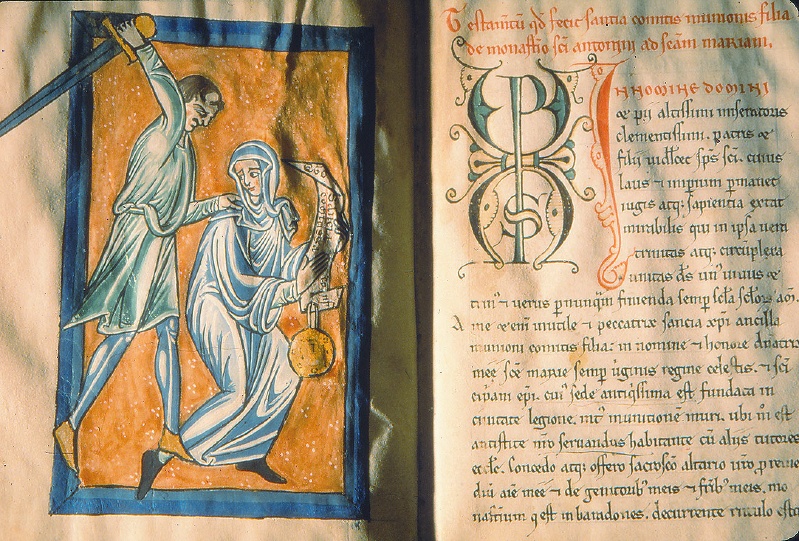 Testamtū qd fecit santia comitis munionis filia
de monastio sci antonini ad scam mariam.
IN NOMINE DOMINI
& pii altissimi miseratoris
clementissimi. patris &
filii uidlicet sps sci. cuius
laus ⁊ imperium pmanet
iugis atq; sapientia extat
mirabilis qui in ipsa ueri
trinitas atq;
unitas ds un' uiuus &
⁊ uerus p nunqm finienda semp scla sclorꝝ am.
inutile ⁊ peccatrix sancia xpi ancilla
munioni comitis filia: in nomine ⁊ honore
mee sce marie semp uginis regine celestis. ⁊ sci
cipani epi. cui' sede antiqssima est fundata in
ciuitate legione. munitione muri. ubi
antistite nro seruandus habitante cū aliis
eccle. Concedo atq; offero sacrosco altario uro p remedio
aie mee ⁊ de genitorib' meis ⁊ frib' meis. mo
nasterium q est in baradones. decurrente riuulo